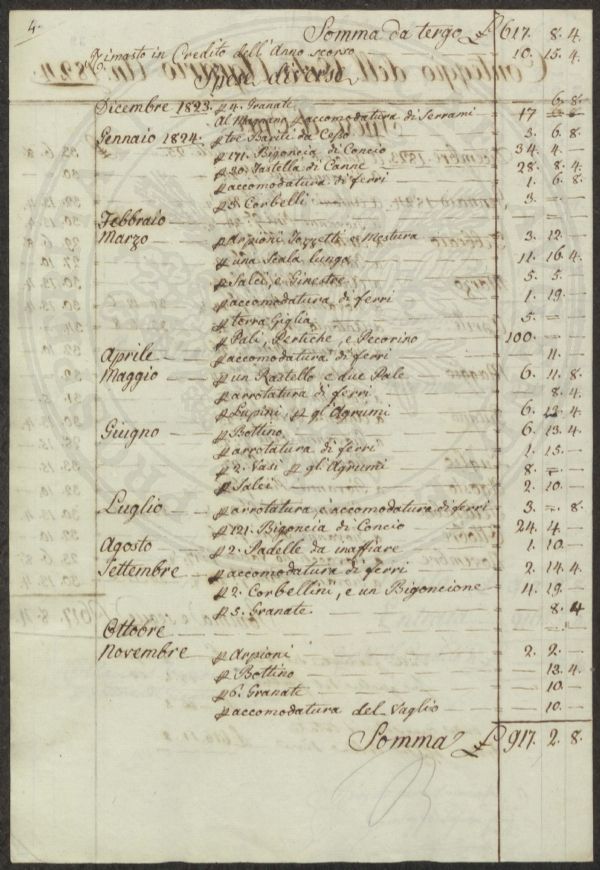 4.
Somma da tergo £ 617. 8. 4
Rimasto in Credito dell'Anno scorso 10. 15. 4
Spese diverse
Dicembre 1823. p 4. Granati — 6. 8.
Al Magnano p accomodatura di Serrami — 17
Gennaio 1824. p tre Barili da Cesso — 3. 6. 8
p 171. Bigoncia di Concio — 34. 4. —
p 30. Fastella di Canne — 28. 8. 4
p accomodatura di ferri — 1. 6. 8
p 3. Corbelli — 3. — —
Febbraio —
Marzo — p Arpioni Tozzetti e Mestura — 3. 12. —
p una Scala lunga — 11. 16. 4
p Salci, e Ginestre — 5. 5. —
p accomodatura di ferri — 1. 19. —
p terra Giglia — 5. —
p Pali, Pertiche, e Pecorino — 100. —
Aprile — p accomodatura di ferri — 11. —
Maggio — p un Rastello e due Pale — 6. 4. 8
p arrotatura di ferri — 8. 4
p Lupini, p gl'Agrumi — 6. 13. 4
Giugno — p Bottino — 6. 13. 4.
p arrotatura di ferri — 1. 15. —
p 2. Vasi p gl'Agrumi — 8. — —
p Salci — 2. 10. —
Luglio — p arrotatura, e accomodatura di ferri — 3. — 8.
p 121. Bigoncia di Concio — 24. 4 —
Agosto — p 2. Padelle da inaffiare — 1. 10. —
Settembre — p accomodatura di ferri — 2. 14. 4
p 2. Corbellini, e un Bigoncione — 4. 19. —
p 5. Granate. — 8. 4
Ottobre —
Novembre — p Arpioni — 2. 2. —
p Bottino — 13. 4.
p 6. Granati — 10. —
p accomodatura del Vaglio — 10. —
Somma £ 917. 2. 8.